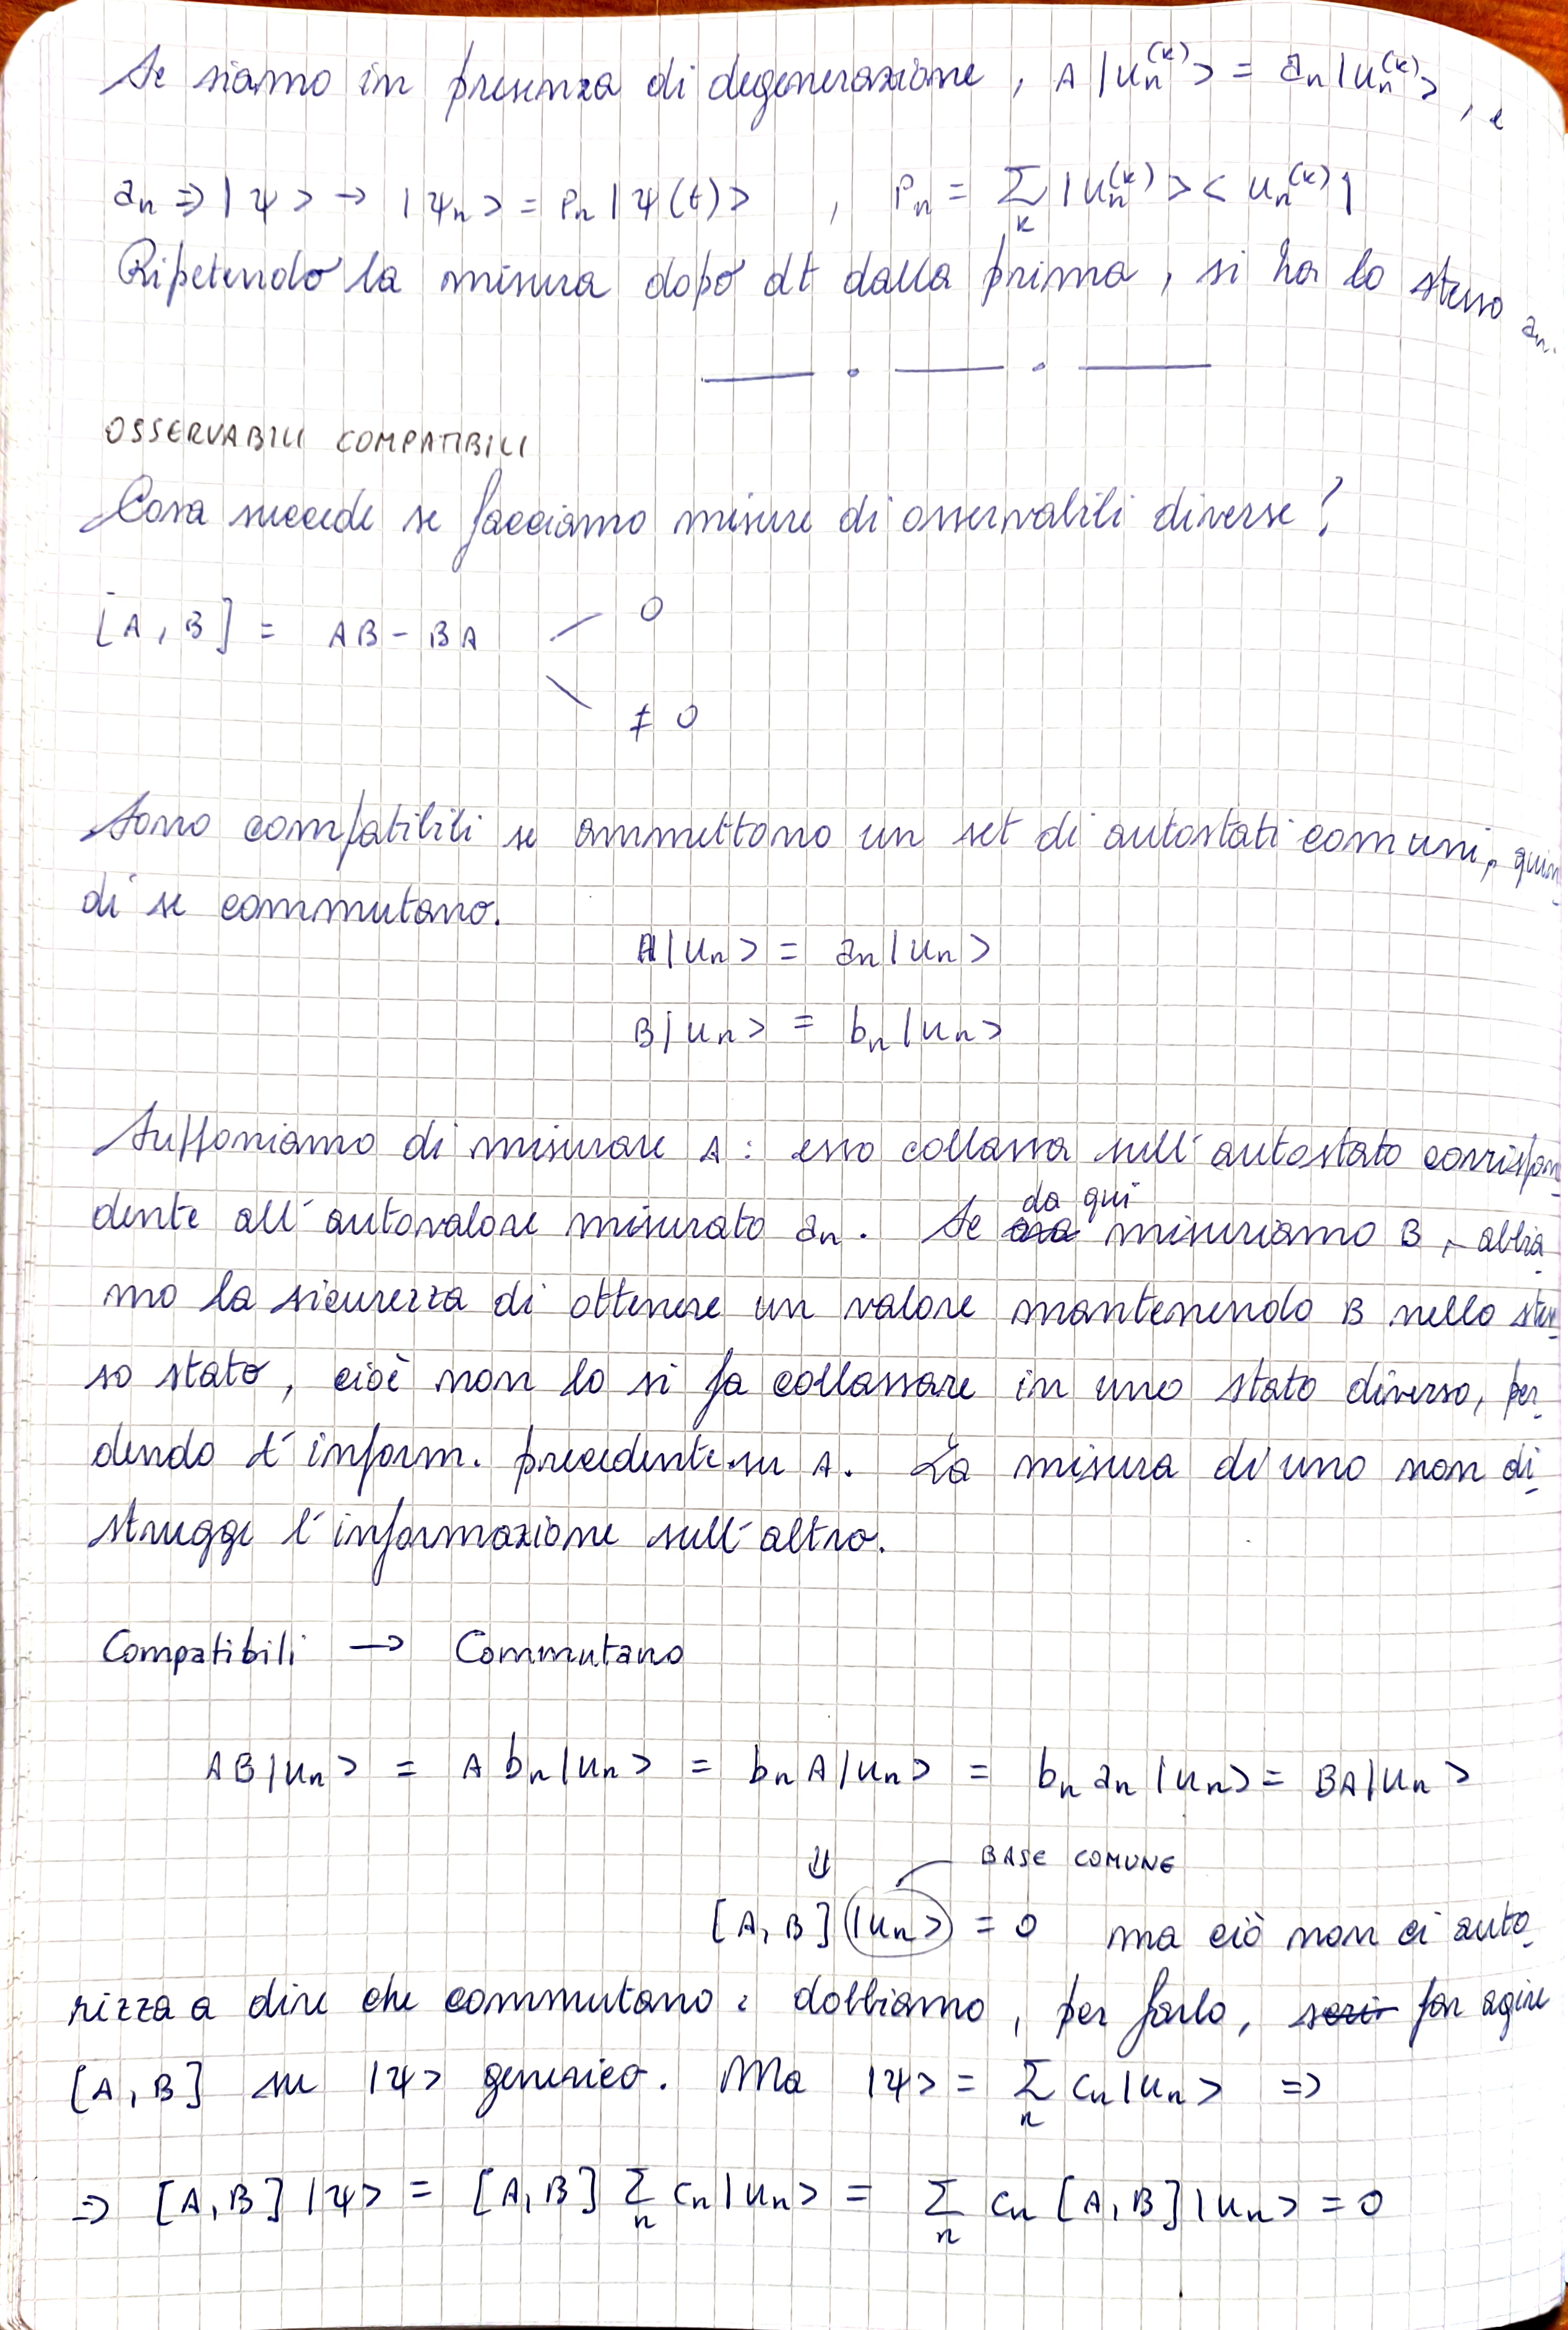 Se siamo in presenza di degenerazione, A|u_n^(k)> = a_n|u_n^(k)>, e
a_n => |ψ> → |ψ_n> = P_n|ψ(t)> , P_n = Σ_k |u_n^(k)><u_n^(k)|
Ripetendo la misura dopo dt dalla prima, si ha lo stesso a_n.
OSSERVABILI COMPATIBILI
Cosa succede se facciamo misure di osservabili diverse?
[A, B] = AB - BA
0
≠ 0
Sono compatibili se ammettono un set di autostati comuni, quin
di se commutano.
A|u_n> = a_n|u_n>
B|u_n> = b_n|u_n>
Supponiamo di misurare A: esso collassa sull'autostato corrispon
dente all'autovalore misurato a_n. Se da qui misuriamo B, abbia-
mo la sicurezza di ottenere un valore mantenendo B nello stes-
so stato, cioè non lo si fa collassare in uno stato diverso, per-
dendo l'inform. precedente su A. La misura di uno non di-
strugge l'informazione sull'altro.
Compatibili → Commutano
AB|u_n> = A b_n|u_n> = b_n A|u_n> = b_n a_n|u_n> = BA|u_n>
⇓ BASE COMUNE
[A, B]|u_n> = 0 ma ciò non ci auto-
rizza a dire che commutano: dobbiamo, per farlo, far agire
[A, B] su |ψ> generico. Ma |ψ> = Σ_n c_n|u_n> =>
=> [A, B]|ψ> = [A, B] Σ_n c_n|u_n> = Σ_n c_n [A, B]|u_n> = 0